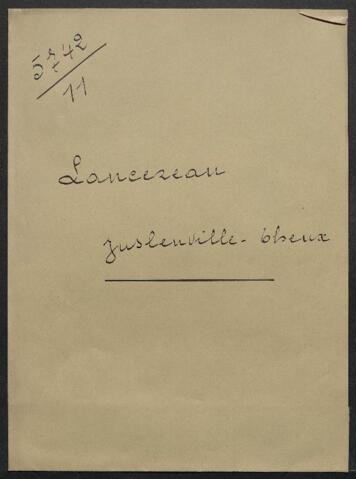 5742
11
Lancezeau
Juslenville - Theux